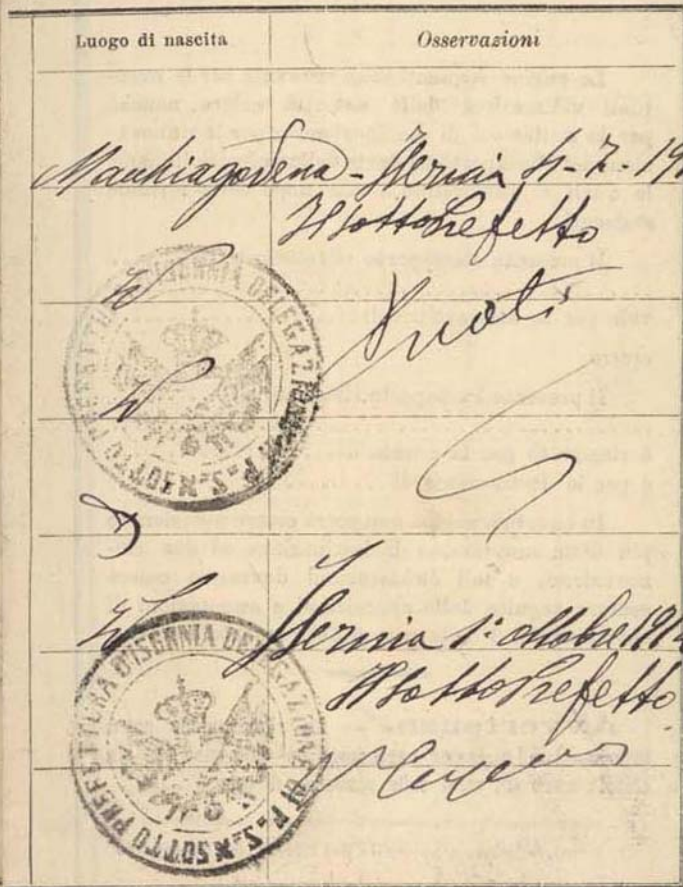 Luogo di nascita Osservazioni
Macchiagodena - Isernia 4-7-191
Il Sottoprefetto
Id
SOTTO PREFETTURA D'ISERNIA DELEGAZIONE DI P.S.
Id
Id
Isernia 1° ottobre 191
Il Sotto Prefetto
SOTTO PREFETTURA D'ISERNIA DELEGAZIONE DI P.S.